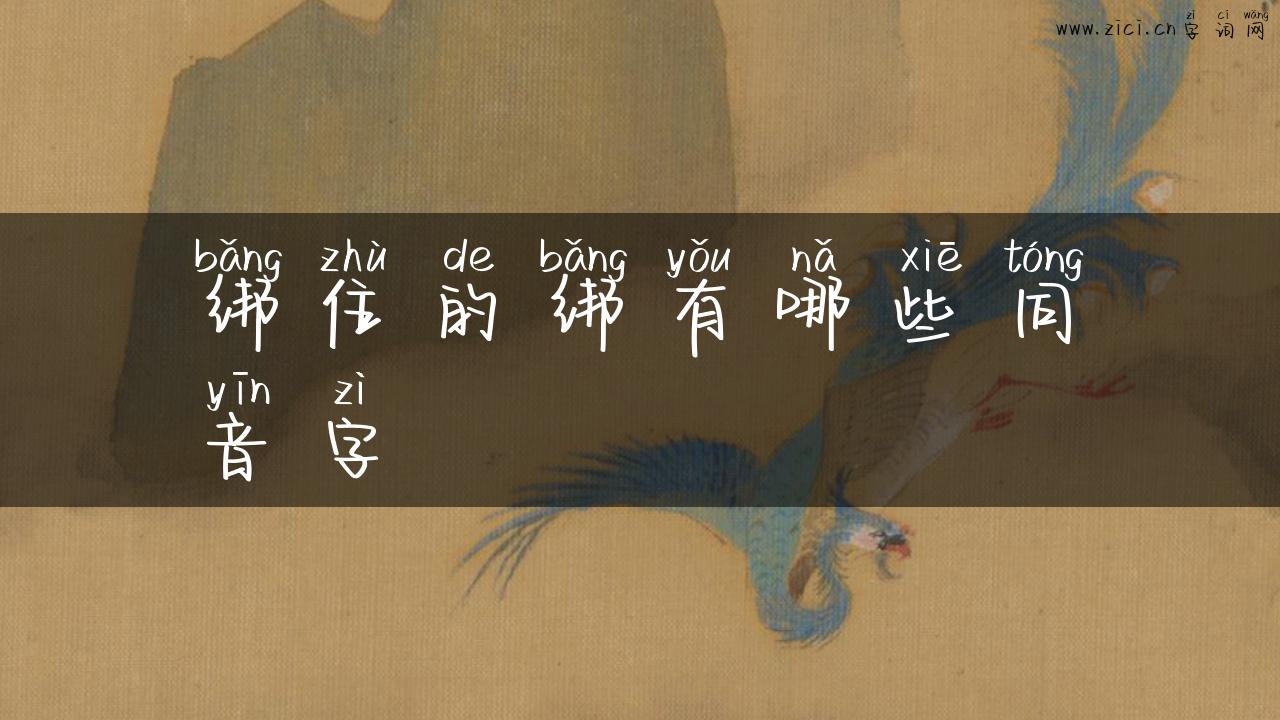 zì cí wǎng
www.zici.cn 字词网
bǎng zhù de bǎng yǒu nǎ xiē tóng
绑住的绑有哪些同
yīn zì
音字